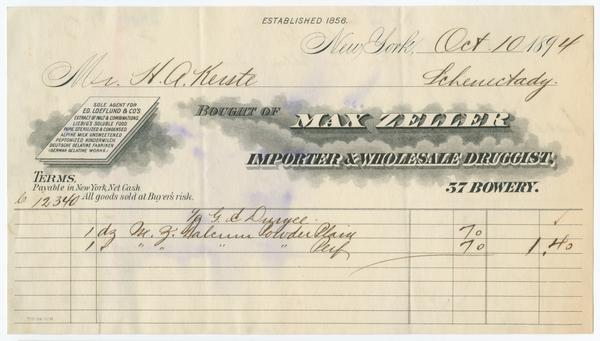 ESTABLISHED 1856.
New York, Oct 10 1894
Mr. H. A. Kerste Schenectady.
SOLE AGENT FOR
ED. LOEFLUND & CO'S
EXTRACT OF MALT & COMBINATIONS,
LIEBIG'S SOLUBLE FOOD
PURE STERILIZED & CONDENSED
ALPINE MILK UNSWEETENED
PEPTONIZED KINDERMILCH
DEUTSCHE GELATINE FABRIKEN
(GERMAN GELATINE WORKS.)
BOUGHT OF MAX ZELLER
IMPORTER & WHOLESALE DRUGGIST,
37 BOWERY.
TERMS,
Payable in New York, Net Cash
All goods sold at Buyer's risk.
12340
G. C. Duryee.
1 dz M. Z. Talcum Powder Plain 70
1 " " " " " Perf 70 1.40